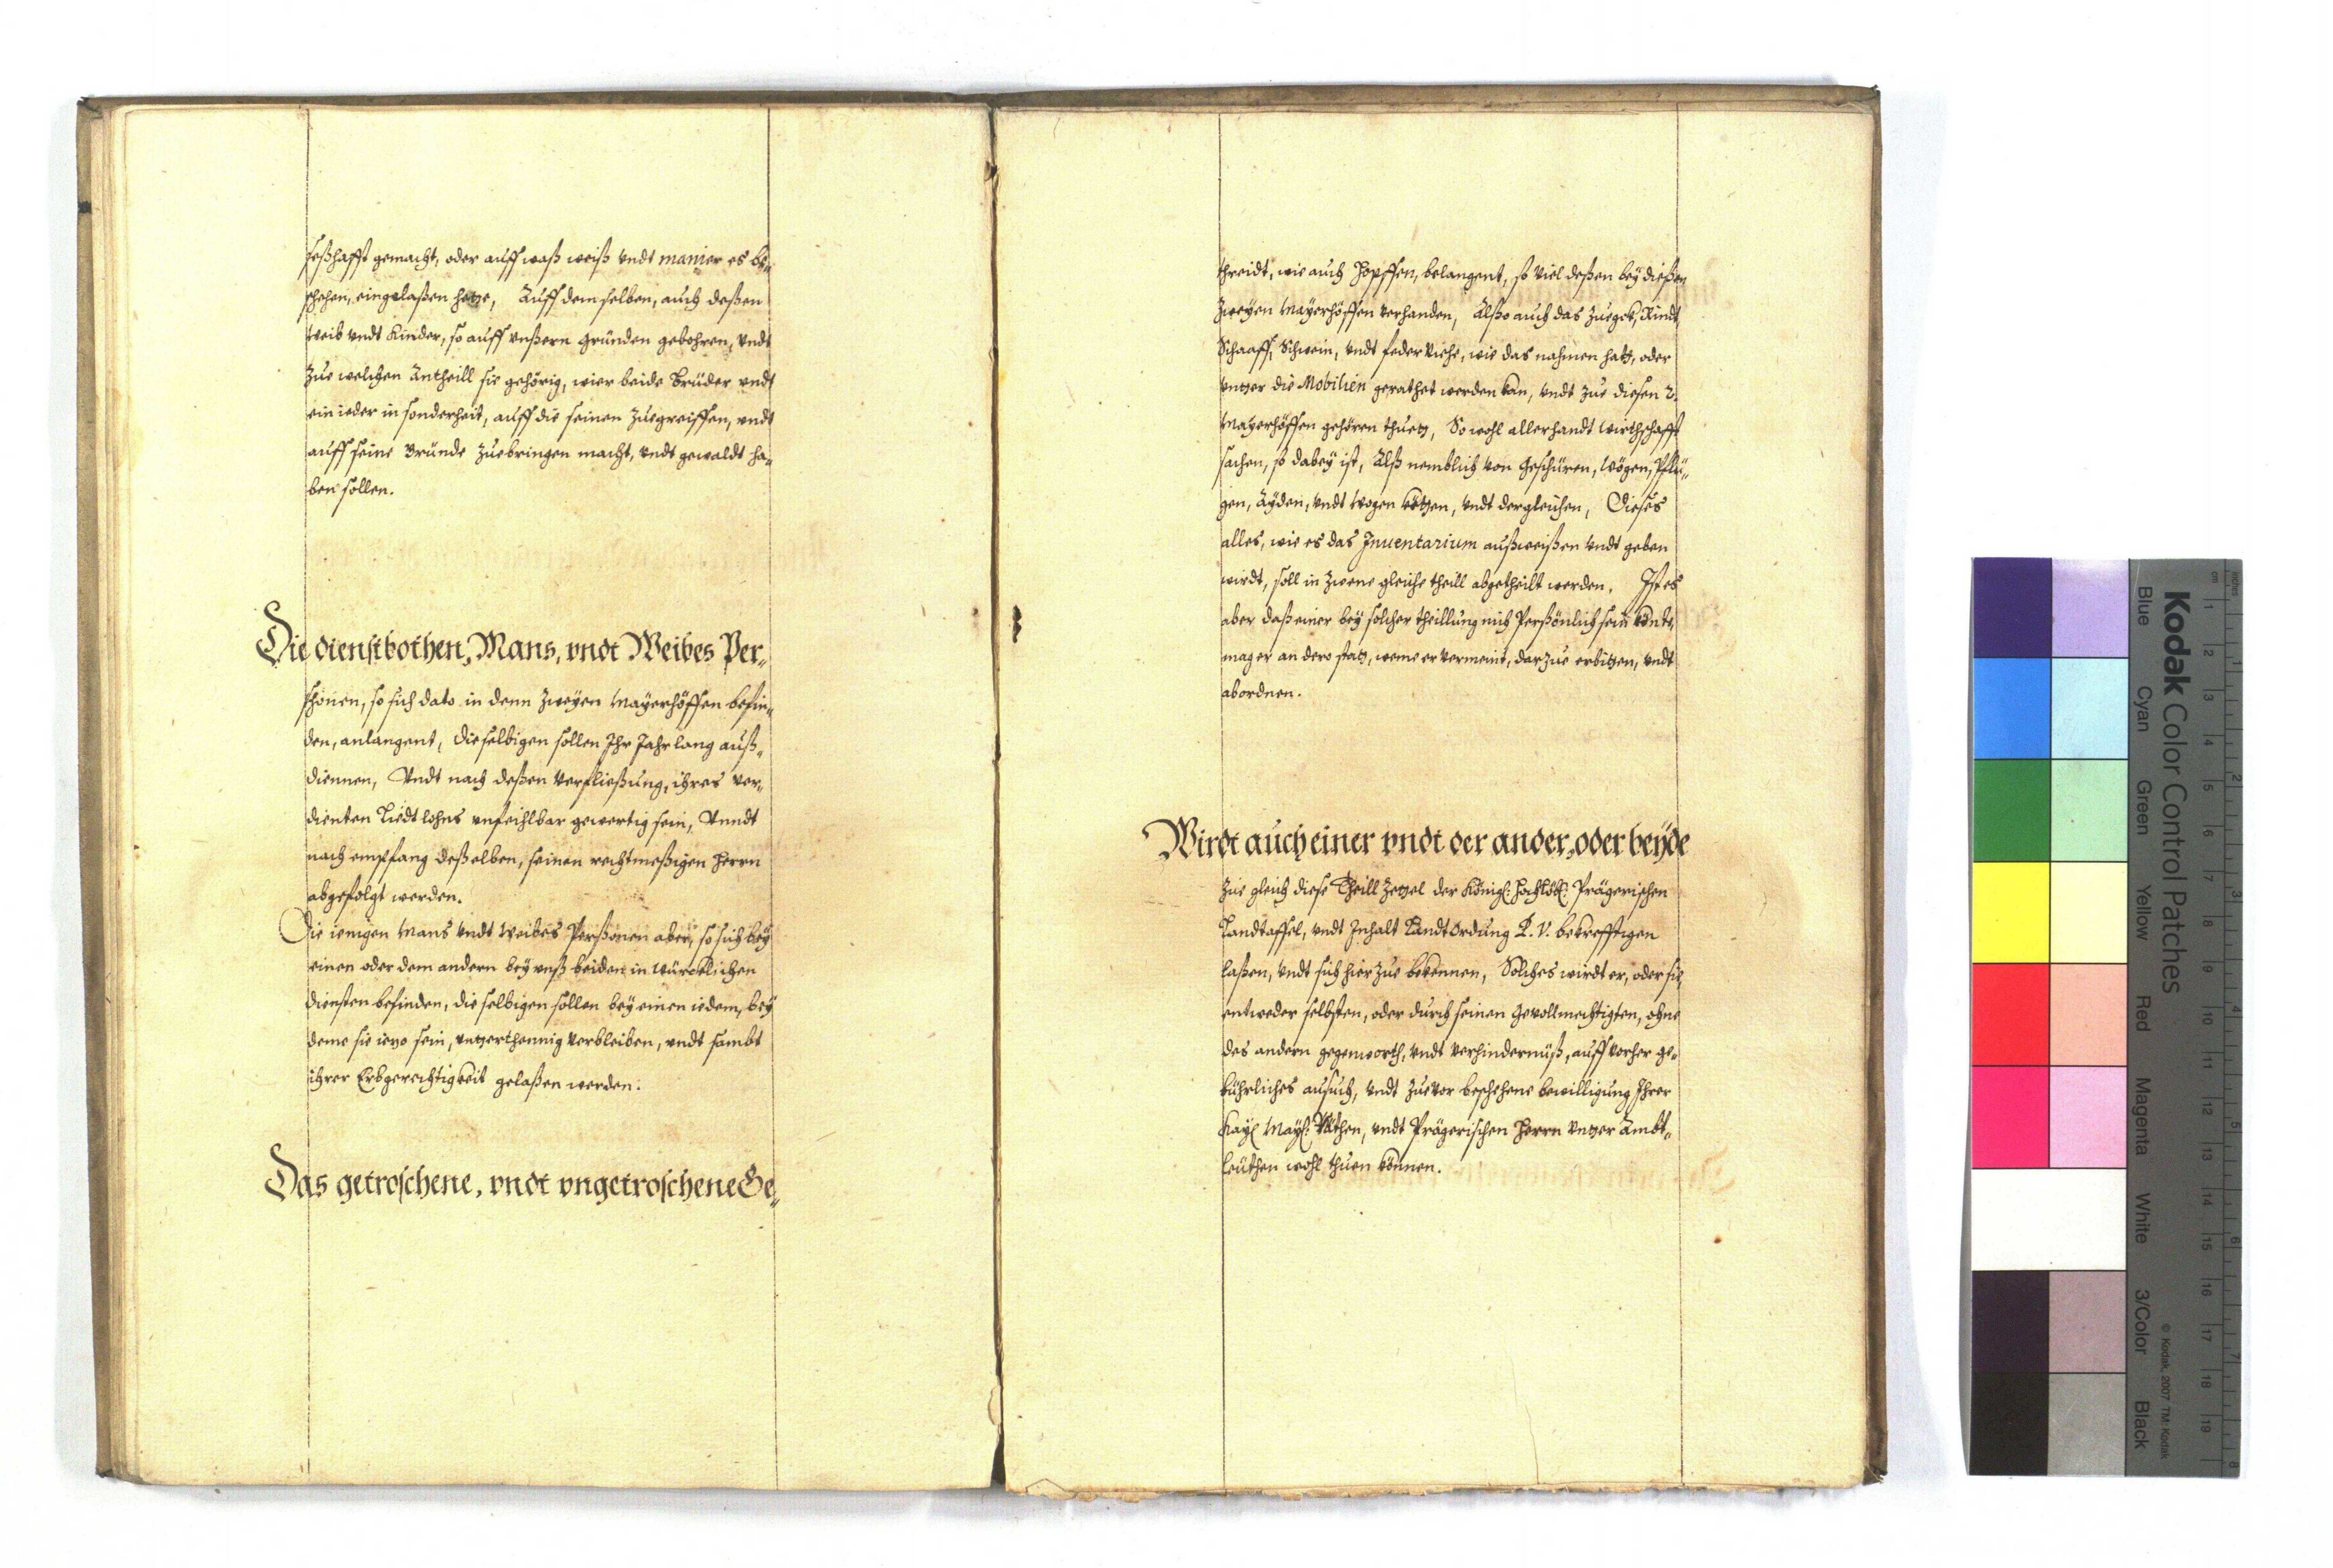 seßhafft gemacht, oder auff waß weiß vndt manier es be„
schehen, eingelaßen hette, Auff demselben, auch deßen
weib vndt Kinder, so auff vnßern gründen gebohren, vndt
zue welchen Antheill sie gehörig, wier beide Brüder vndt
ein ieder in sonderheit, auff die seinen zuegreiffen, vndt
auff seine Gründe zuebringen macht, vndt gewaldt ha„
ben sollen.
Die dienstbothen, Mans, vndt Weibes Per„
schonen, so sich dato in denn zweyen Mayerhöffen befin„
den, anlangent, dieselbigen sollen Ihr Jahr lang auß„
diennen, Vndt nach deßen verfließung, ihres ver„
dienten Liedtlohns vnfeihlbar gewertig sein, Vnndt
nach empfang deßelben, seinen rechtmeßigen Herrn
abgefolgt werden.
Die ienigen Mans vndt Weibes Perßonen aber, so sich bey
einen oder dem andern bey vnß beiden in würcklichen
diensten befinden, dieselbigen sollen bey einen iedem, bey
deme sie iezo sein, vnterthennig verbleiben, vndt sambt
ihrer Erbgerechtigkeit gelaßen werden.
Das getroschene, vndt vngetroschene Ge„
threidt, wie auch Hopffen, belangent, so viel deßen bey dießen
zweyen Mayerhöffen verhanden, Alßo auch das zuegok, Rindt
Schaaff, Schwein, vndt federviehe, wie das nahmen hatt, oder
vnter die Mobilien gerathet werden kan, vndt zue diesen 2.
Mayerhöffen gehören thuett, So wohl allerhandt wirthschafft
sachen, so dabey ist, Alß nemblich von Geschüren, Wägen, Pflü„
gen, Ayden, vndt Wogen ketten, vndt dergleichen, Dieses
alles, wie es das Inuentarium außweißen vndt geben
wirdt, soll in zwene gleiche theill abgetheilt werden. Ist es
aber daß einer bey solcher theillung nich Perßönlich sein köndt,
mag er an dero statt, weme er vermeint, darzue erbitten, vndt
abordnen.
Wirdt auch einer vndt der ander, oder beyde
zue gleich diese Theill Zettel der Königl: Hochlöbl: Prägerischen
Landtaffel, vndt Inhalt Landtordung P. V. bekrefftigen
laßen, vndt sich hier zue bekennen, Solches wirdt er, oder sie,
entweder selbsten, oder durch seinen gevollmechtigten, ohne
des andern gegenworth, vndt verhindernüß, auff vorher ge„
bührliches ansuch, vndt zuevor beschehene bewilligung Ihrer
Kayl Mayl: Räthen, vndt Prägerischen Herrn Vnter Ambt„
leüthen wohl thuen können.
Kodak Color Control Patches
Blue Cyan Green Yellow Red Magenta White 3/Color Black
© Kodak, 2007 TM: Kodak
inches
cm
1 2 3 4 5 6 7 8 9 10 11 12 13 14 15 16 17 18 19
1 2 3 4 5 6 7 8